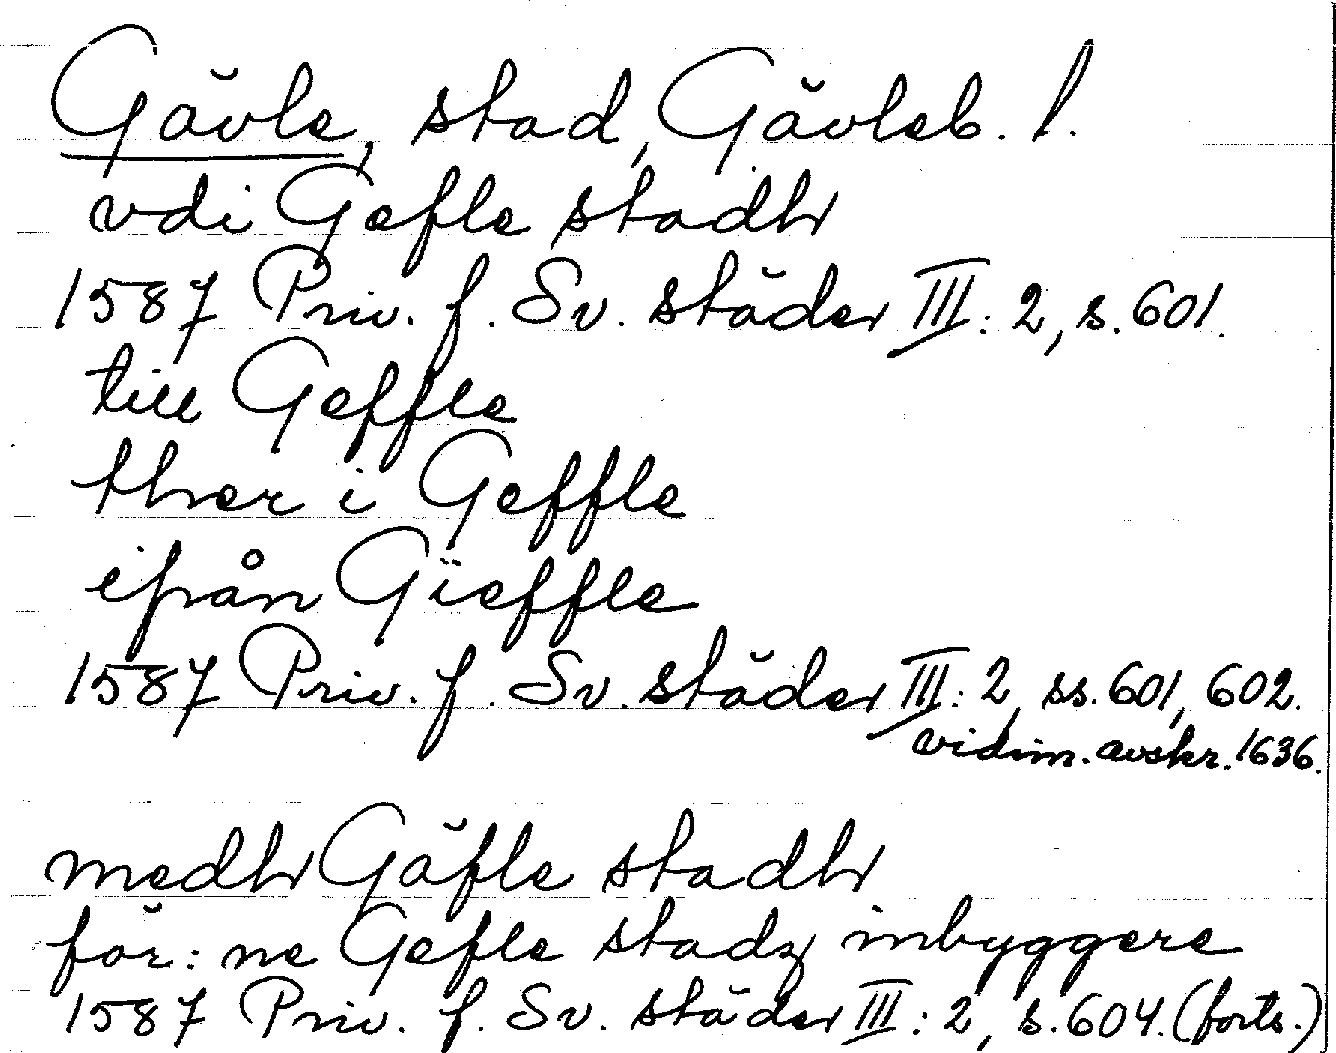 Gävle, stad, Gävleb. l.
vdi Gefle stadh
1587 Priv. f. Sv. städer III: 2, s. 601.
till Geffle
ther i Geffle
ifrån Gieffle
1587 Priv. f. Sv. städer III: 2, ss. 601, 602.
vidim. avskr. 1636.
medh Gäfle stadh
för: ne Gefle stadz inbyggere
1587 Priv. f. Sv. städer III: 2, s. 604. (forts.)